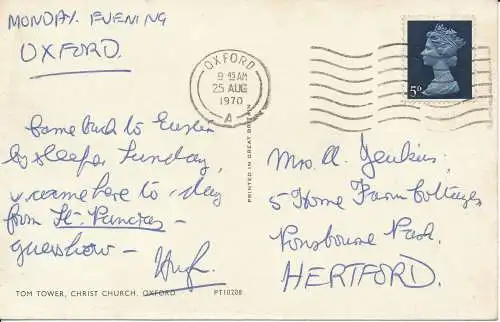 MONDAY EVENING
OXFORD.
OXFORD
9 15 AM
25 AUG
1970
A
5D
Came back to Euston
by sleeper Sunday,
& came here to-day
from St. Pancras –
guesshow –
Hugh.
PRINTED IN GREAT BRITAIN
Mrs. A. Jenkins,
5 Home Farm Cottages
Ponsbourne Park,
HERTFORD.
TOM TOWER, CHRIST CHURCH, OXFORD. PT10208